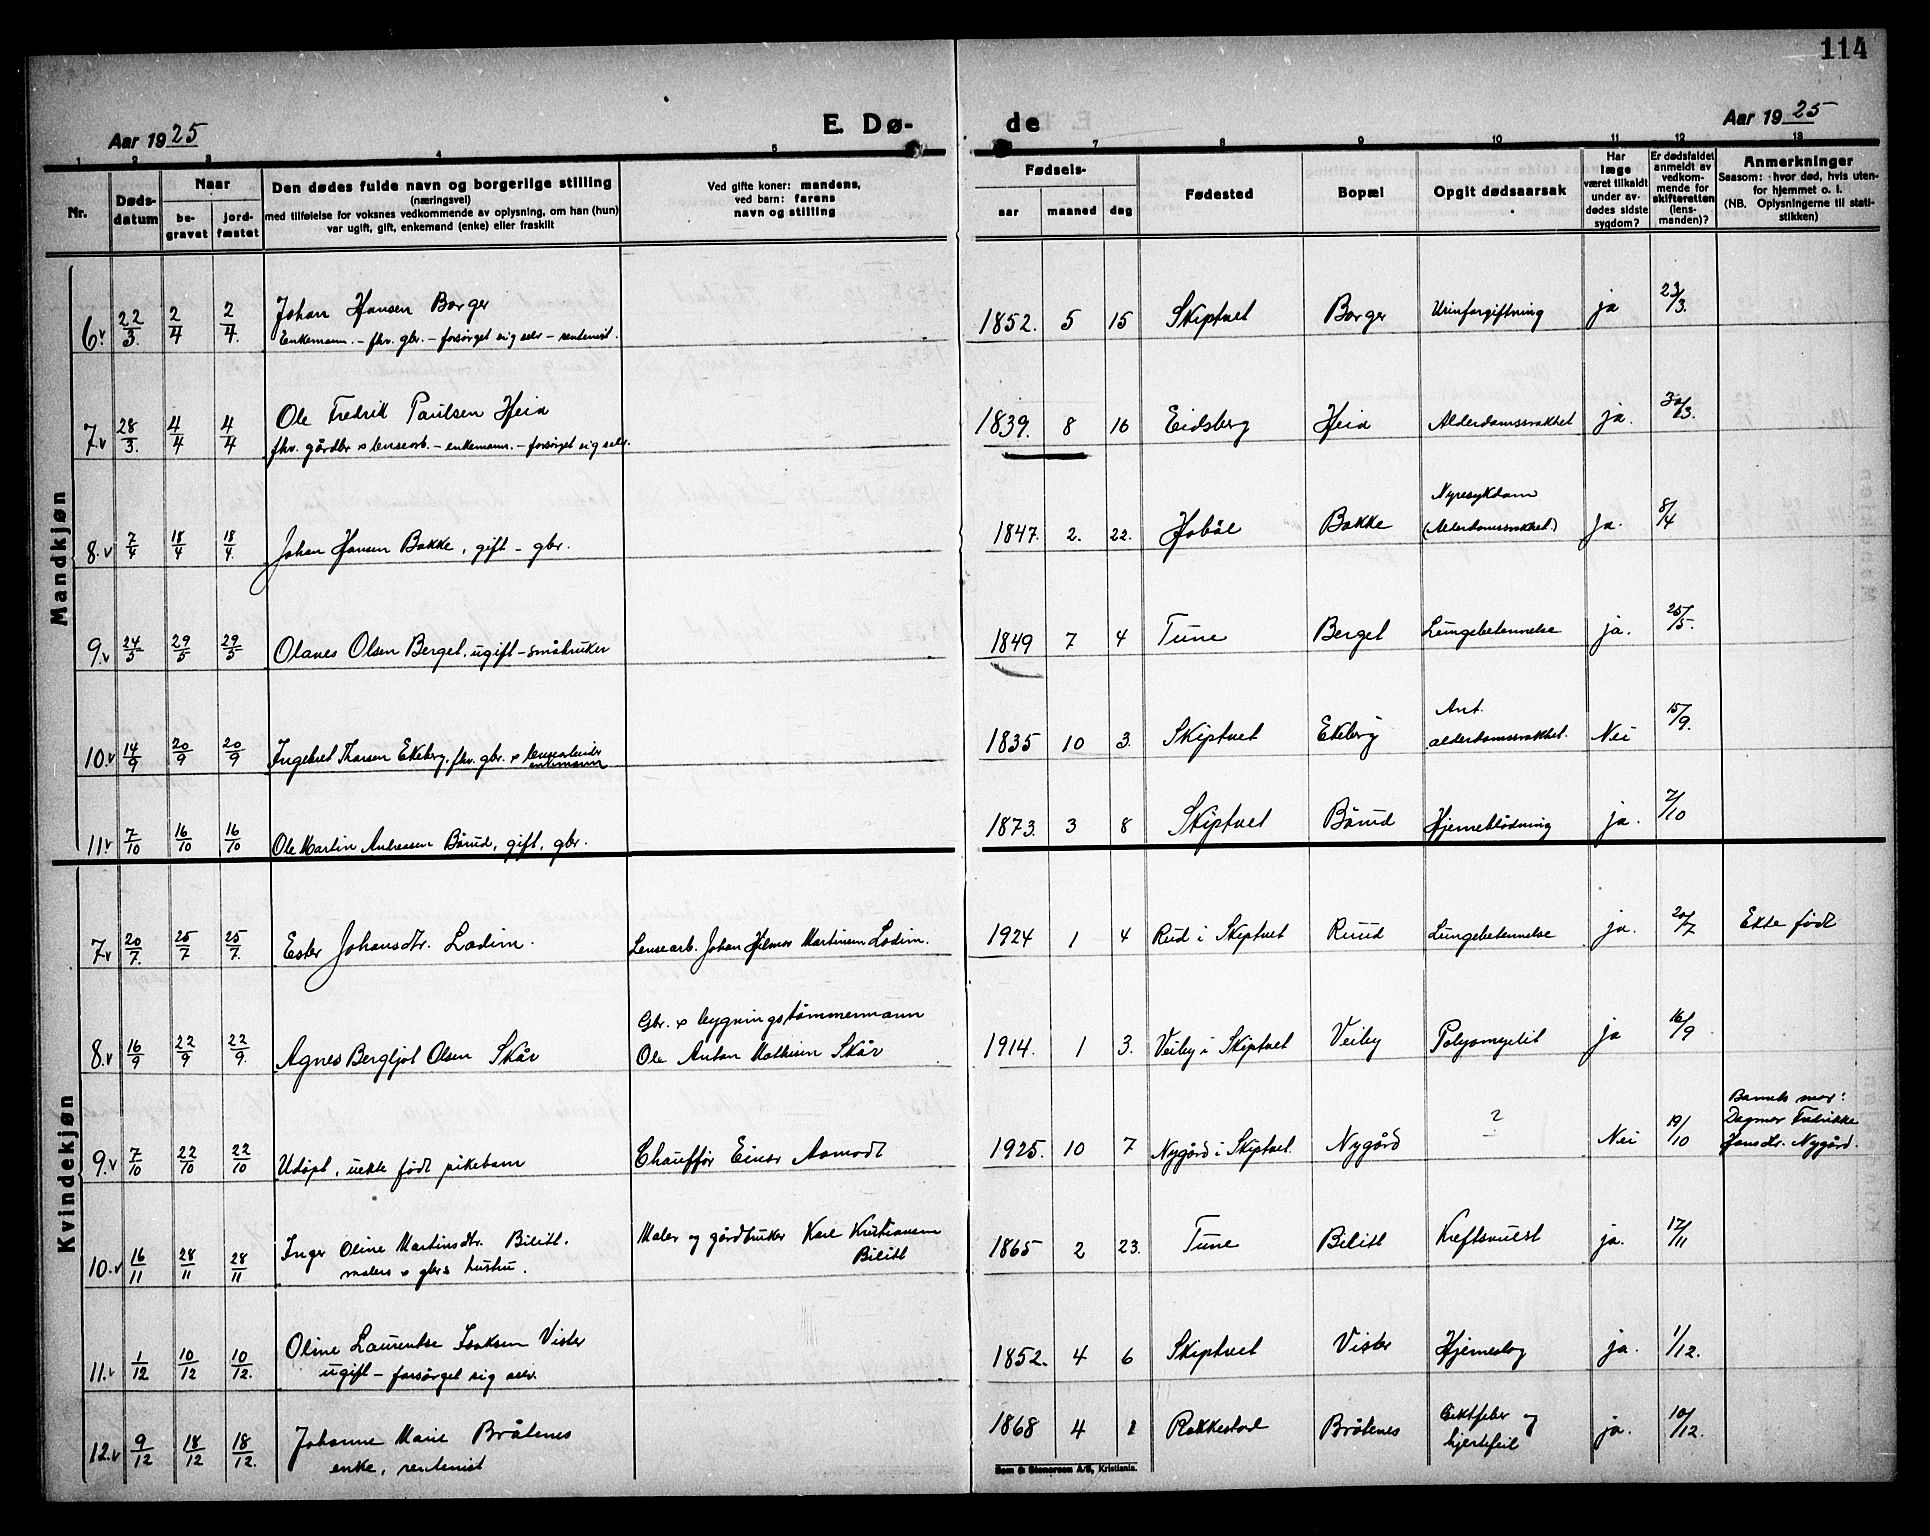 114
Aar 1925
E. Dø-
de
Aar 1925
1 2 3 4 5 7 8 9 10 11 12 13
Nr.
Døds-
datum
Naar
be-
gravet
jord-
fæstet
Den dødes fulde navn og borgerlige stilling
(næringsvei)
med tilføielse for voksnes vedkommende av oplysning, om han (hun)
var ugift, gift, enkemand (enke) eller fraskilt
Ved gifte koner: mandens,
ved barn: farens
navn og stilling
Fødsels-
aar maaned dag
Fødested
Bopæl
Opgit dødsaarsak
Har
læge
været tilkaldt
under av-
dødes sidste
sygdom?
Er dødsfaldet
anmeldt av
vedkom-
mende for
skifteretten
(lens-
manden)?
Anmerkninger
Saasom: hvor død, hvis uten-
for hjemmet o. l.
(NB. Oplysningerne til stati-
stikken)
Mandkjøn
6v 22/3. 2/4 2/4. Johan Hansen Borger
Enkemann. – fhv. gbr. – forsørget sig selv – rentenist.
1852. 5 15 Skiptvet Borger Urinforgiftning ja 23/3.
7v 28/3. 4/4 4/4 Ole Fredrik Paulsen Heia
fhv. gårdbr & lensearb. – enkemann. – forsørget sig selv.
1839. 8 16 Eidsberg Heia Alderdomssvakhet ja. 30/3.
8.v 7/4 18/4 18/4. Johan Hansen Bakke, gift – gbr.
1847. 2. 22. Hobøl Bakke Nyresykdom
(Alderdomssvakhet) Ja. 8/4
9.v 24/5 29/5 29/5 Olaves Olsen Berget, ugift – småbruker
1849 7 4 Tune Berget Lungebetennelse ja. 25/5.
10.v 14/9 20/9 20/9 Ingebret Thorsen Ekeberg, fhv. gbr. & lensearbeider
enkemann
1835 10 3. Skiptvet Ekeberg Ant.
alderdomssvakhet. Nei 15/9.
11.v 7/10 16/10 16/10 Ole Martin Andreassen Børud, gift, gbr.
1873. 3 8 Skiptvet Børud Hjerneblødning ja. 7/10
Kvindekjøn
7v 20/7. 25/7 25/7. Ester Johansdtr. Lodim. Lensearb. Johan Hilmar Martinsen Lodim.
1924 1 4 Rud i Skiptvet Ruud Lungebetennelse ja. 20/7 Ekte født
8.v 16/9 22/9 22/9. Agnes Bergljot Olsen Skår Gbr. & bygningstømmermann
Ole Anton Mathisen Skår
1914. 1 3. Veiby i Skiptvet Veiby Polyomyelit ja 16/9
9.v 7/10 22/10 22/10 Udøpt, uekte født pikebarn Chauffør Einar Aamodt
1925. 10 7 Nygård i Skiptvet. Nygård ? Nei 19/10 Barnets mor:
Dagmar Fredrikke
Hansdtr. Nygård.
10.v 16/11 28/11 28/11 Inger Oline Martinsdtr. Bilitt.
malers & gbrs hustru.
Maler og gårdbruker Karl Kristiansen
Bilitt
1865 2 23. Tune Bilitt Kreftsvulst ja. 17/11
11.v 1/12 10/12 10/12. Oline Laurentse Isaksen Vister
ugift – forsørget sig selv.
1852. 4 6 Skiptvet Vister Hjerneslag ja. 1/12.
12.v 9/12 18/12 18/12. Johanne Marie Bråtenes
enke, rentenist
1868 4 1 Rakkestad Bråtenes Giktfeber og
hjertefeil ja. 10/12.
Sem & Stenersen A/S, Kristiania.